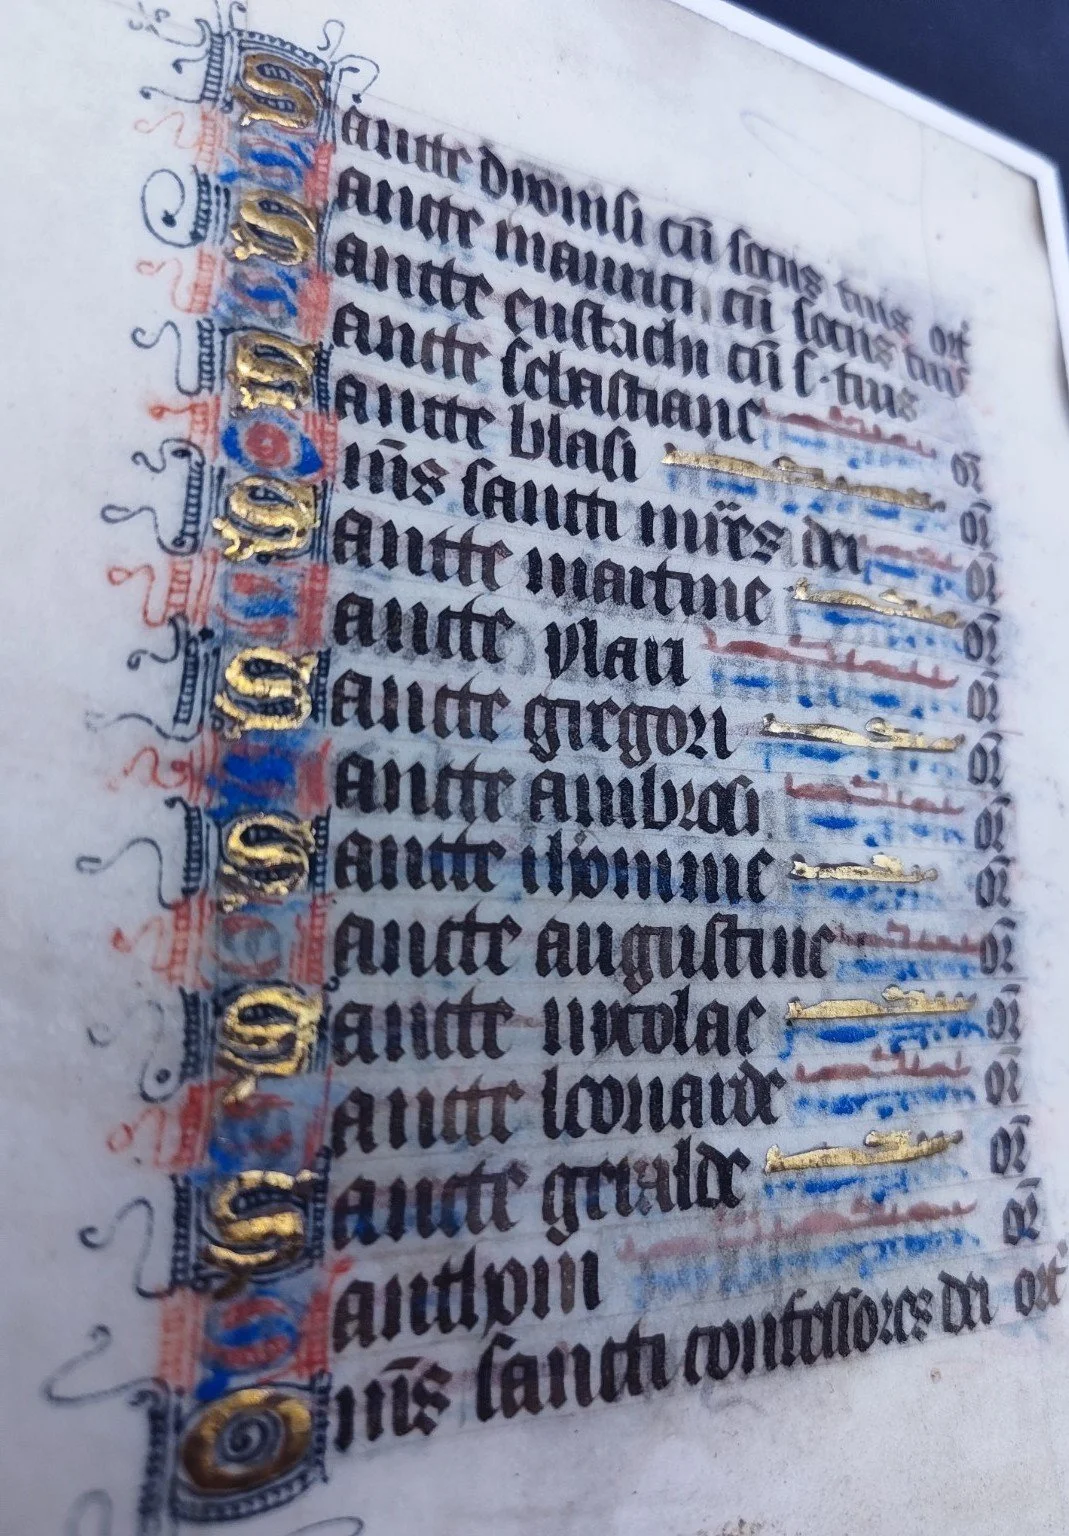 Sancte dyonisi cū sociis tuis or̄
Sancte maurici cū sociis tuis
Sancte eustachii cū s. tuis
Sancte sebastiane or̄
Sancte blasi or̄
Om̄s sancti mr̄es dei or̄
Sancte martine or̄
Sancte ylari or̄
Sancte girgori or̄
Sancte ambrosi or̄
Sancte ihronime or̄
Sancte augustine or̄
Sancte nycolae or̄
Sancte leonarde or̄
Sancte geralde or̄
Santhoni or̄
Om̄s sancti confessores dei or̄